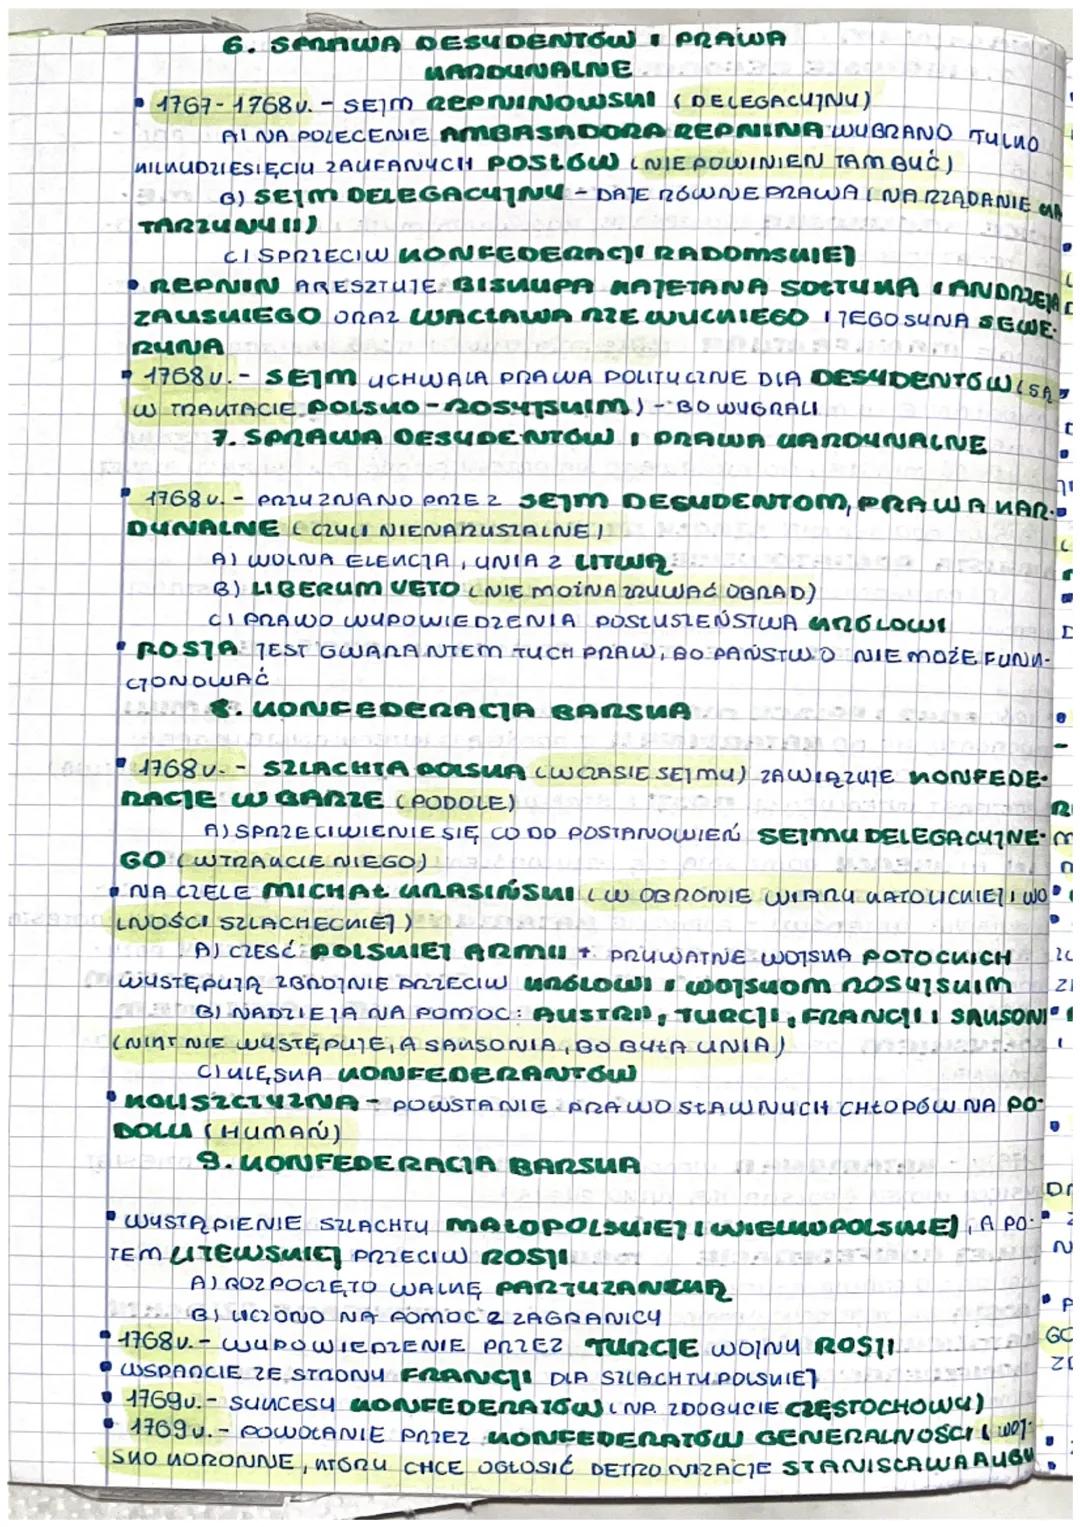 6. SPRAWA DESYDENTÓW I PRAWA
KARDYNALNE
• 1767-1768r. - SEJM REPNINOWSKI (DELEGACYJNY)
A) NA POLECENIE AMBASADORA REPNINA WYBRANO TYLKO
KILKUDZIESIĘCIU ZAUFANYCH POSŁÓW (NIE POWINIEN TAM BYĆ)
B) SEJM DELEGACYJNY - DAJE RÓWNE PRAWA (NA RZĄDANIE KA
TARZYNY II)
C) SPRZECIW KONFEDERACJI RADOMSKIEJ
• REPNIN ARESZTUJE BISKUPA KAJETANA SOŁTYKA I ANDRZEJA
ZAŁUSKIEGO ORAZ WACŁAWA RZEWUCKIEGO I JEGO SYNA SEWE-
RYNA
• 1768r. - SEJM UCHWALA PRAWA POLITYCZNE DLA DESYDENTÓW (SĄ
W TRAKTACIE POLSKO-ROSYJSKIM) - BO WYGRALI
7. SPRAWA DESYDENTÓW I PRAWA KARDYNALNE
• 1768r. - PRZYZNANO PRZEZ SEJM DESYDENTOM, PRAWA KAR-
DYNALNE (CZYLI NIENARUSZALNE)
A) WOLNA ELEKCJA, UNIA Z LITWĄ
B) LIBERUM VETO (NIE MOŻNA ZRYWAĆ OBRAD)
C) PRAWO WYPOWIEDZENIA POSŁUSZEŃSTWA KRÓLOWI
• ROSJA JEST GWARANTEM TYCH PRAW, BO PAŃSTWO NIE MOŻE FUNK-
CJONOWAĆ
8. KONFEDERACJA BARSKA
• 1768r. - SZLACHTA POLSKA (W CZASIE SEJMU) ZAWIĄZUJE KONFEDE-
RACJE W BARZE (PODOLE)
A) SPRZECIWIENIE SIĘ CO DO POSTANOWIEŃ SEJMU DELEGACYJNE-
GO (W TRAKCIE NIEGO)
• NA CZELE MICHAŁ KRASIŃSKI (W OBRONIE WIARY KATOLICKIEJ I WO
LNOŚCI SZLACHECKIEJ)
A) CZEŚĆ POLSKIEJ ARMII + PRYWATNE WOJSKA POTOCKICH
WYSTĘPUJĄ ZBROJNIE PRZECIW KRÓLOWI I WOJSKOM ROSYJSKIM
B) NADZIEJA NA POMOC: AUSTRII, TURCJI, FRANCJI I SAKSONI
(NIKT NIE WYSTĘPUJE, A SAKSONIA, BO BYŁA UNIA)
C) KLĘSKA KONFEDERANTÓW
• KOLISZCZYZNA - POWSTANIE PRAWOSŁAWNYCH CHŁOPÓW NA PO-
DOLU (HUMAŃ)
9. KONFEDERACJA BARSKA
• WYSTĄPIENIE SZLACHTY MAŁOPOLSKIEJ I WIELKOPOLSKIEJ, A PO-
TEM LITEWSKIEJ PRZECIW ROSJI
A) ROZPOCZĘTO WALKĘ PARTYZANCKĄ
B) LICZONO NA POMOC Z ZAGRANICY
• 1768r. - WYPOWIEDZENIE PRZEZ TURCJE WOJNY ROSJI
• WSPARCIE ZE STRONY FRANCJI DLA SZLACHTY POLSKIEJ
• 1769r. - SUKCESY KONFEDERATÓW (NP. ZDOBYCIE CZĘSTOCHOWY)
• 1769r. - POWOŁANIE PRZEZ KONFEDERATÓW GENERALNOŚCI (WOJ-
SKO KORONNE, KTÓRY CHCE OGŁOSIĆ DETRONIZACJE STANISŁAWA AUGU